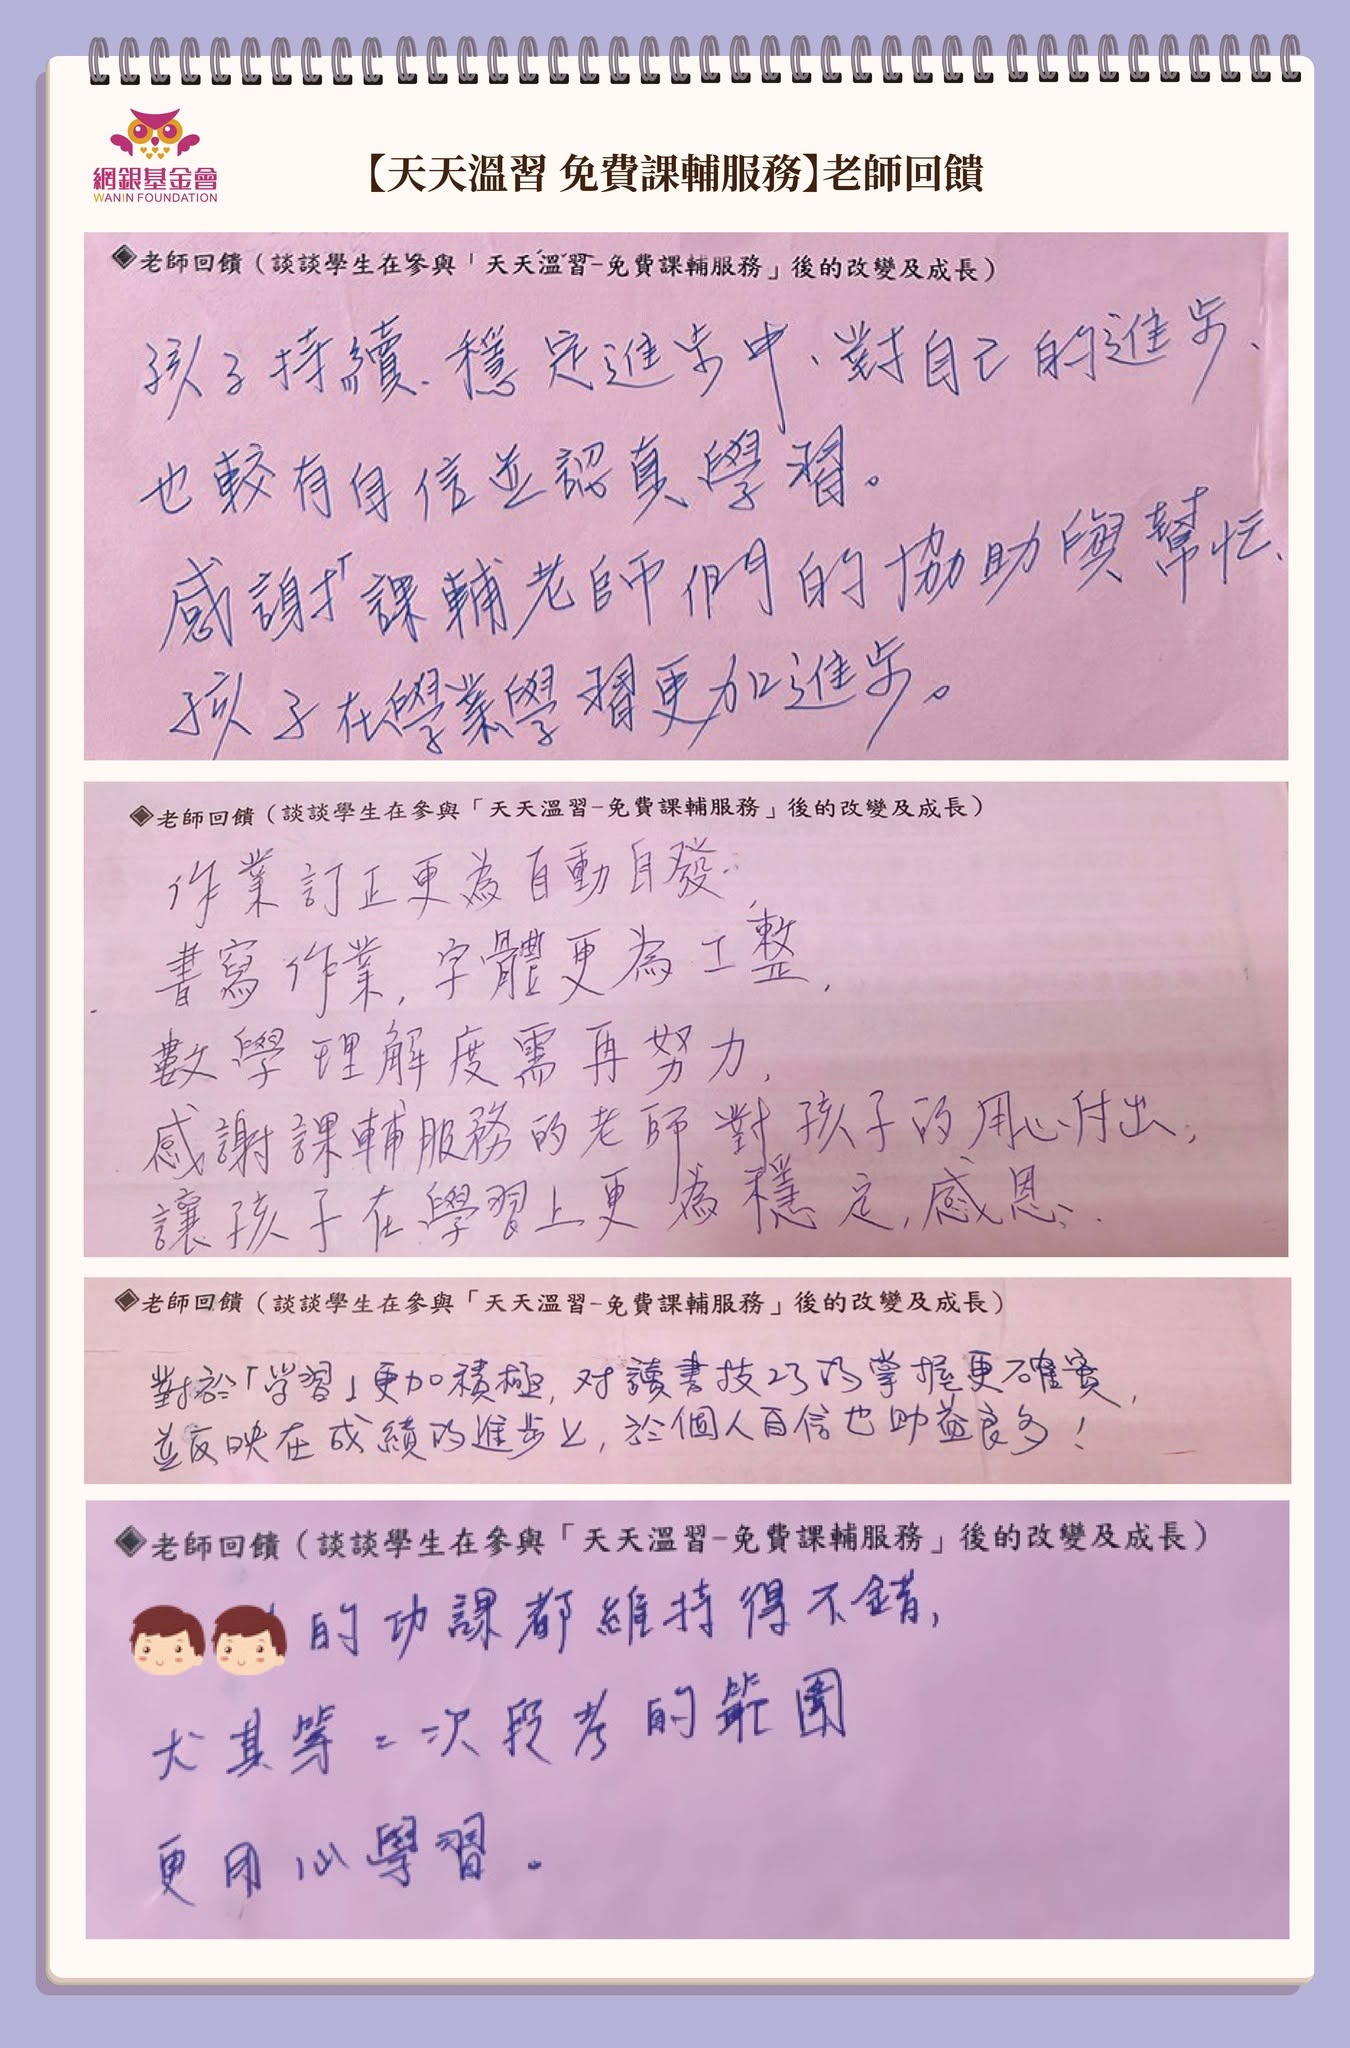 網銀基金會
WANIN FOUNDATION
【天天溫習 免費課輔服務】老師回饋
◈老師回饋(談談學生在參與「天天溫習-免費課輔服務」後的改變及成長)
孩子持續、穩定進步中、對自己的進步、
也較有自信並認真學習。
感謝「課輔老師們的協助與幫忙、
孩子在學業學習更加進步。
◈老師回饋(談談學生在參與「天天溫習-免費課輔服務」後的改變及成長)
作業訂正更為自動自發,
書寫作業,字體更為工整,
數學理解度需再努力,
感謝課輔服務的老師對孩子的用心付出,
讓孩子在學習上更為穩定,感恩、
◈老師回饋(談談學生在參與「天天溫習-免費課輔服務」後的改變及成長)
對於「学習」更加積極,对讀書技巧的掌握更確實,
並反映在成績的進步上,於個人自信也助益良多!
◈老師回饋(談談學生在參與「天天溫習-免費課輔服務」後的改變及成長)
的功課都維持得不錯,
尤其第二次段考的範圍
更用心學習。